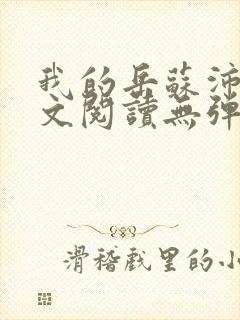 我的岳蘇沛
文閱讀無彈
滑稽戲里的小